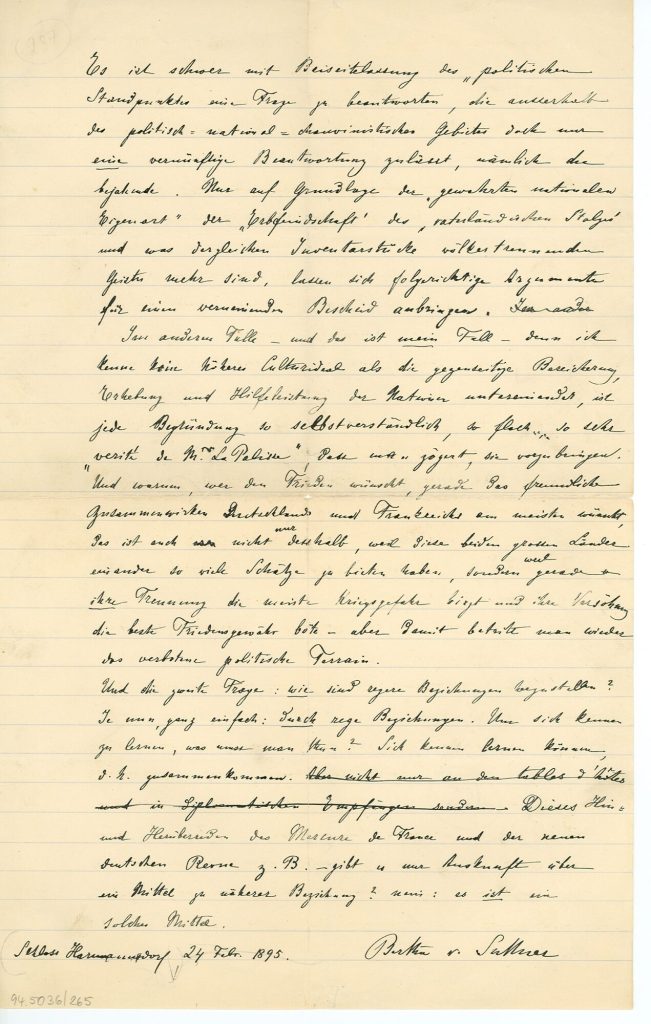 287
Es ist schwer mit Beiseitelassung des „politischen
Standpunktes eine Frage zu beantworten, die ausserhalb
des politisch=national=chauvinistischen Gebietes doch nur
eine vernünftige Beantwortung zulässt, nämlich die
bejahende. Nur auf Grundlage der „gewahrten nationalen
Eigenart" der „Erbfeindschaft" des „vaterländischen Stolzes"
und was dergleichen Inventarstücke völkertrennenden
Geistes mehr sind, lassen sich folgerichtige Argumente
für einen verneinenden Bescheid anbringen. Im ander
Im anderen Falle – und das ist mein Fall – denn ich
kenne kein höheres Culturideal als die gegenseitige Bereicherung,
Erhebung und Hilfeleistung der Nationen untereinander, ist
jede Begründung so selbstverständlich, so flach... so sehr
„verité de Mr. La Palisse", dass man zögert, sie vorzubringen.
Und warum, wer den Frieden wünscht, gerade das freundliche
Zusammenwirken Deutschlands und Frankreichs am meisten wünscht,
das ist auch nicht nur desshalb, weil diese beiden grossen Länder
einander so viele Schätze zu bieten haben, sondern weil gerade
ihre Trennung die meiste Kriegsgefahr birgt und ihre Versöhnung
die beste Friedensgewähr böte – aber damit betritt man wieder
das verbotene politische Terrain.
Und die zweite Frage: wie sind regere Beziehungen herzustellen?
Je nun, ganz einfach: durch rege Beziehungen. Um sich kennen
zu lernen, was muss man thun? Sich kennen lernen können,
d. h. zusammenkommen. Aber nicht nur an den tables d'hôtes
und in diplomatischen Empfängen sondern – Dieses Hin=
und Herüberreden des Mercure de France und der neuen
deutschen Revue z. B. – gibt es nur Auskunft über
ein Mittel zu näherer Beziehung? nein: es ist ein
solches Mittel.
Schloss Harmannsdorf 24 Febr. 1895. Bertha v. Suttner
94.5036/265